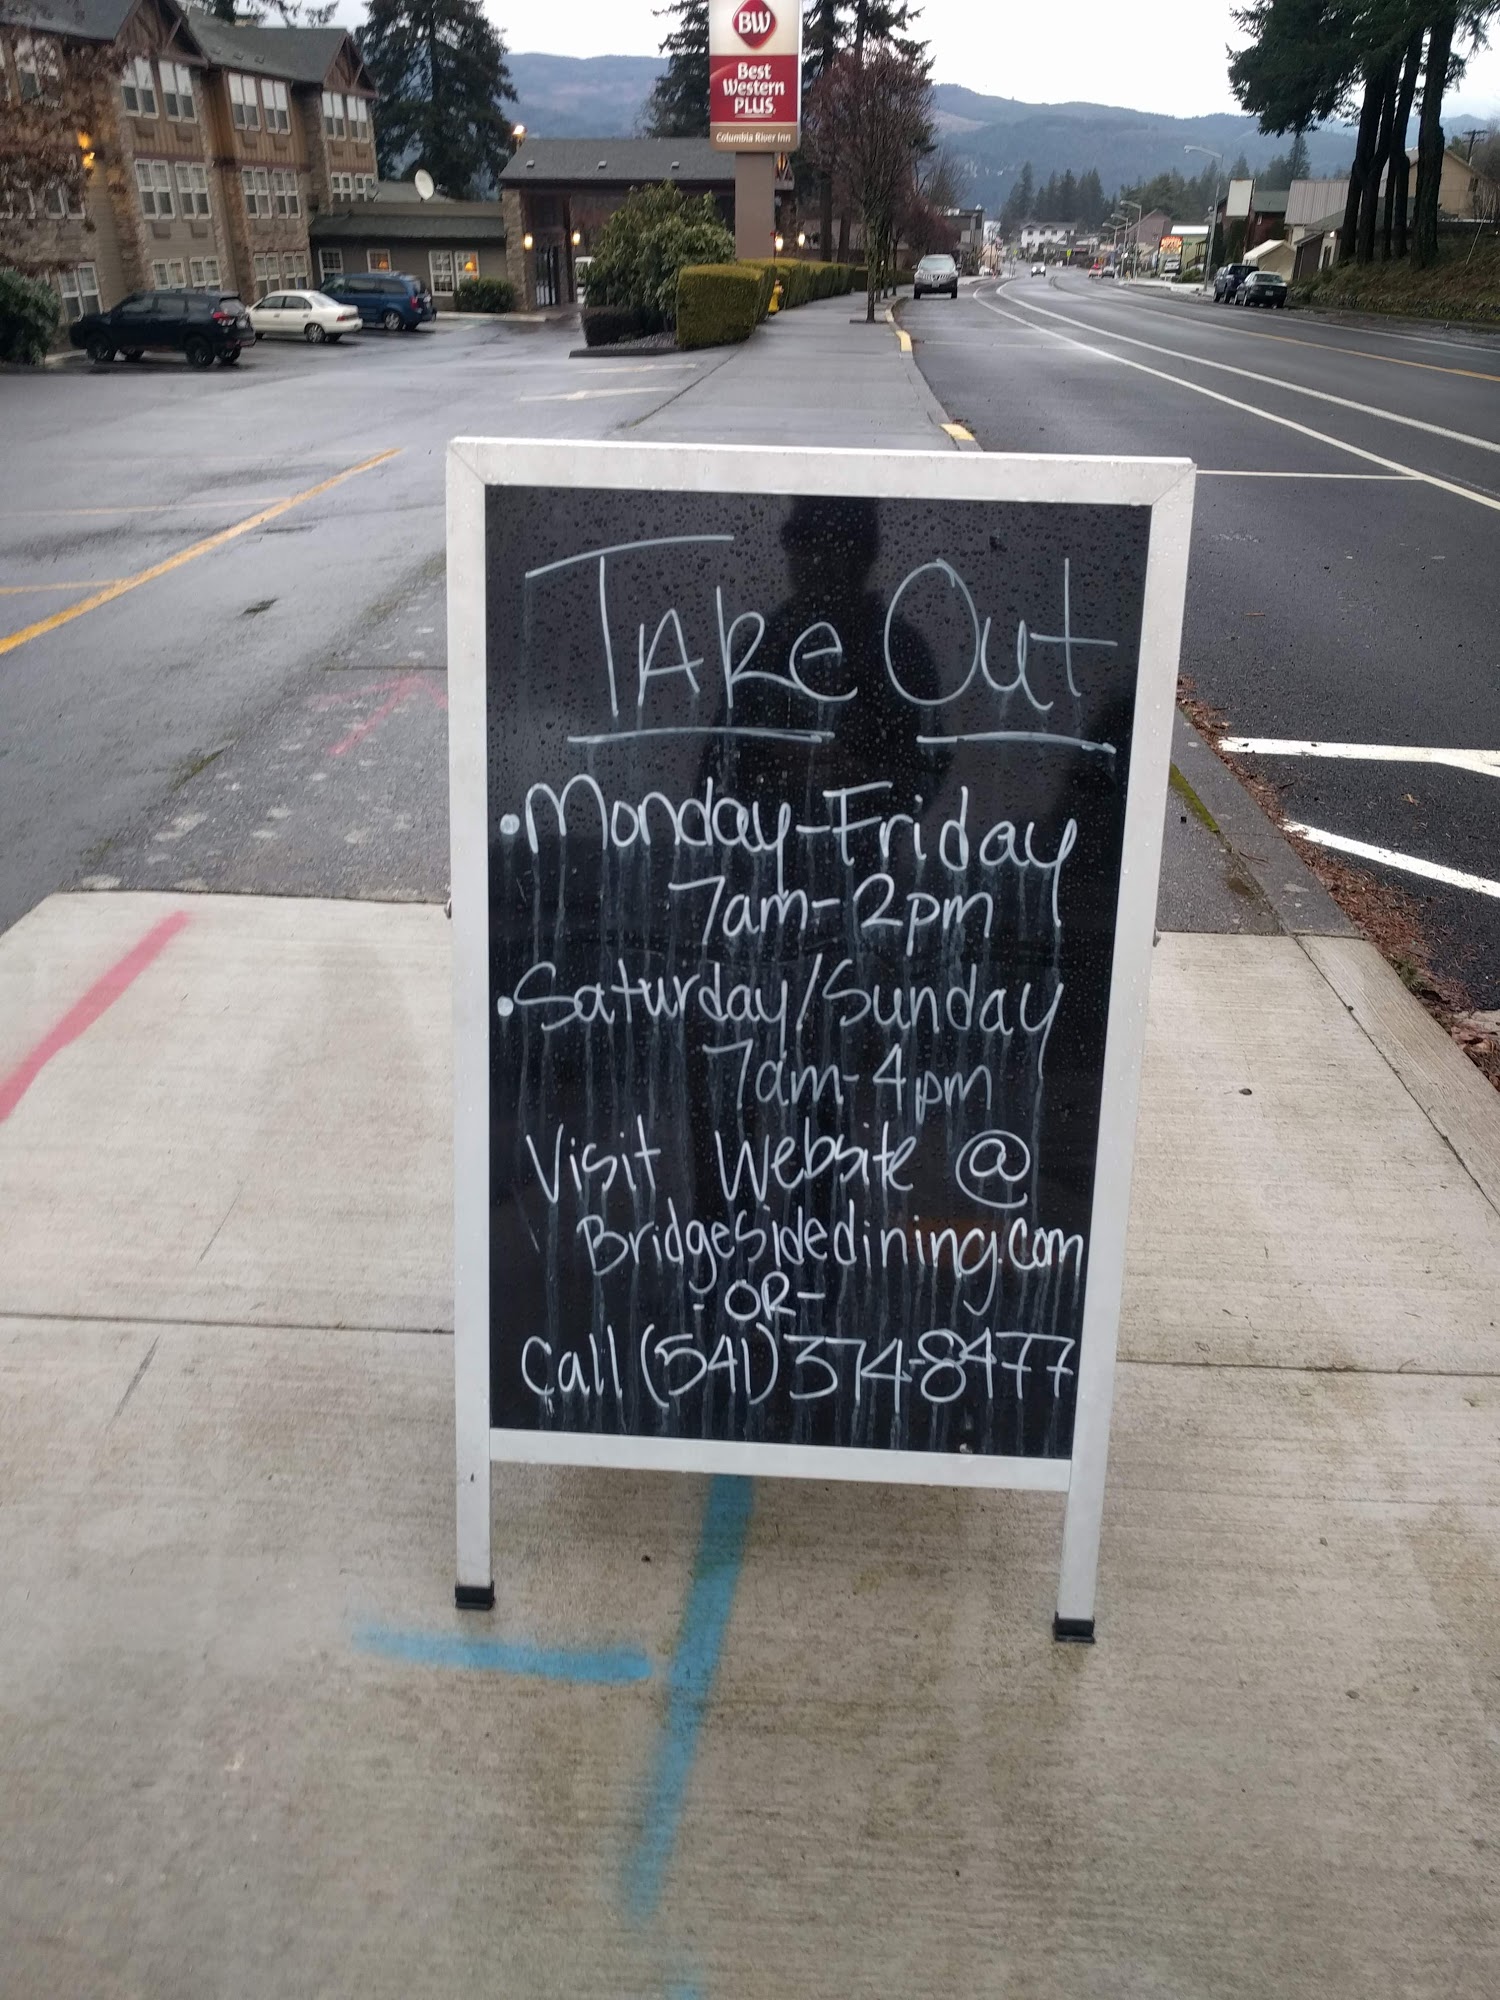 BW
Best
Western
PLUS.
Columbia River Inn
TAke Out
•Monday-Friday
7am-2pm
•Saturday/Sunday
7am-4pm
Visit Website @
Bridgesidedining.com
-OR-
Call (541)374-8477